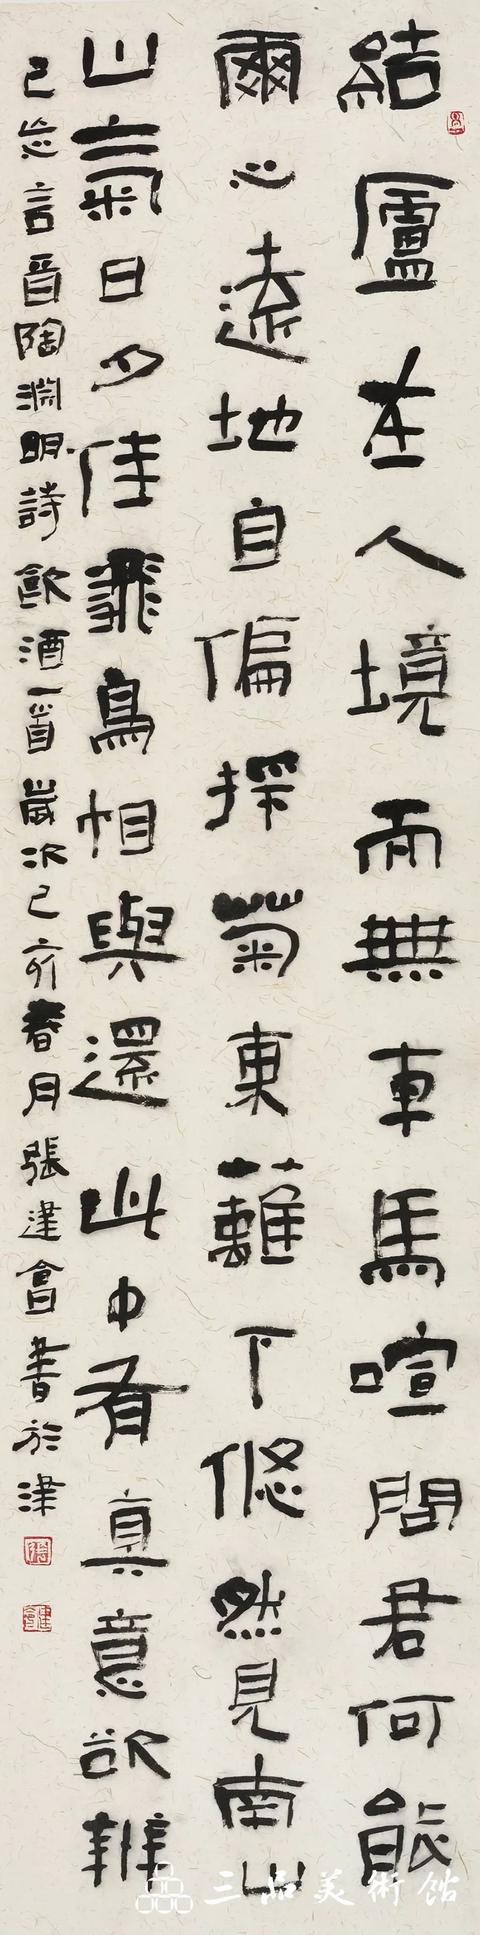 結廬在人境而無車馬喧問君何能
爾心遠地自偏採菊東籬下悠然見南山
山氣日夕佳飛鳥相與還此中有真意欲辨
已忘言晉陶淵明詩飲酒一首歲次己亥春月張建會書於津
三品美術館